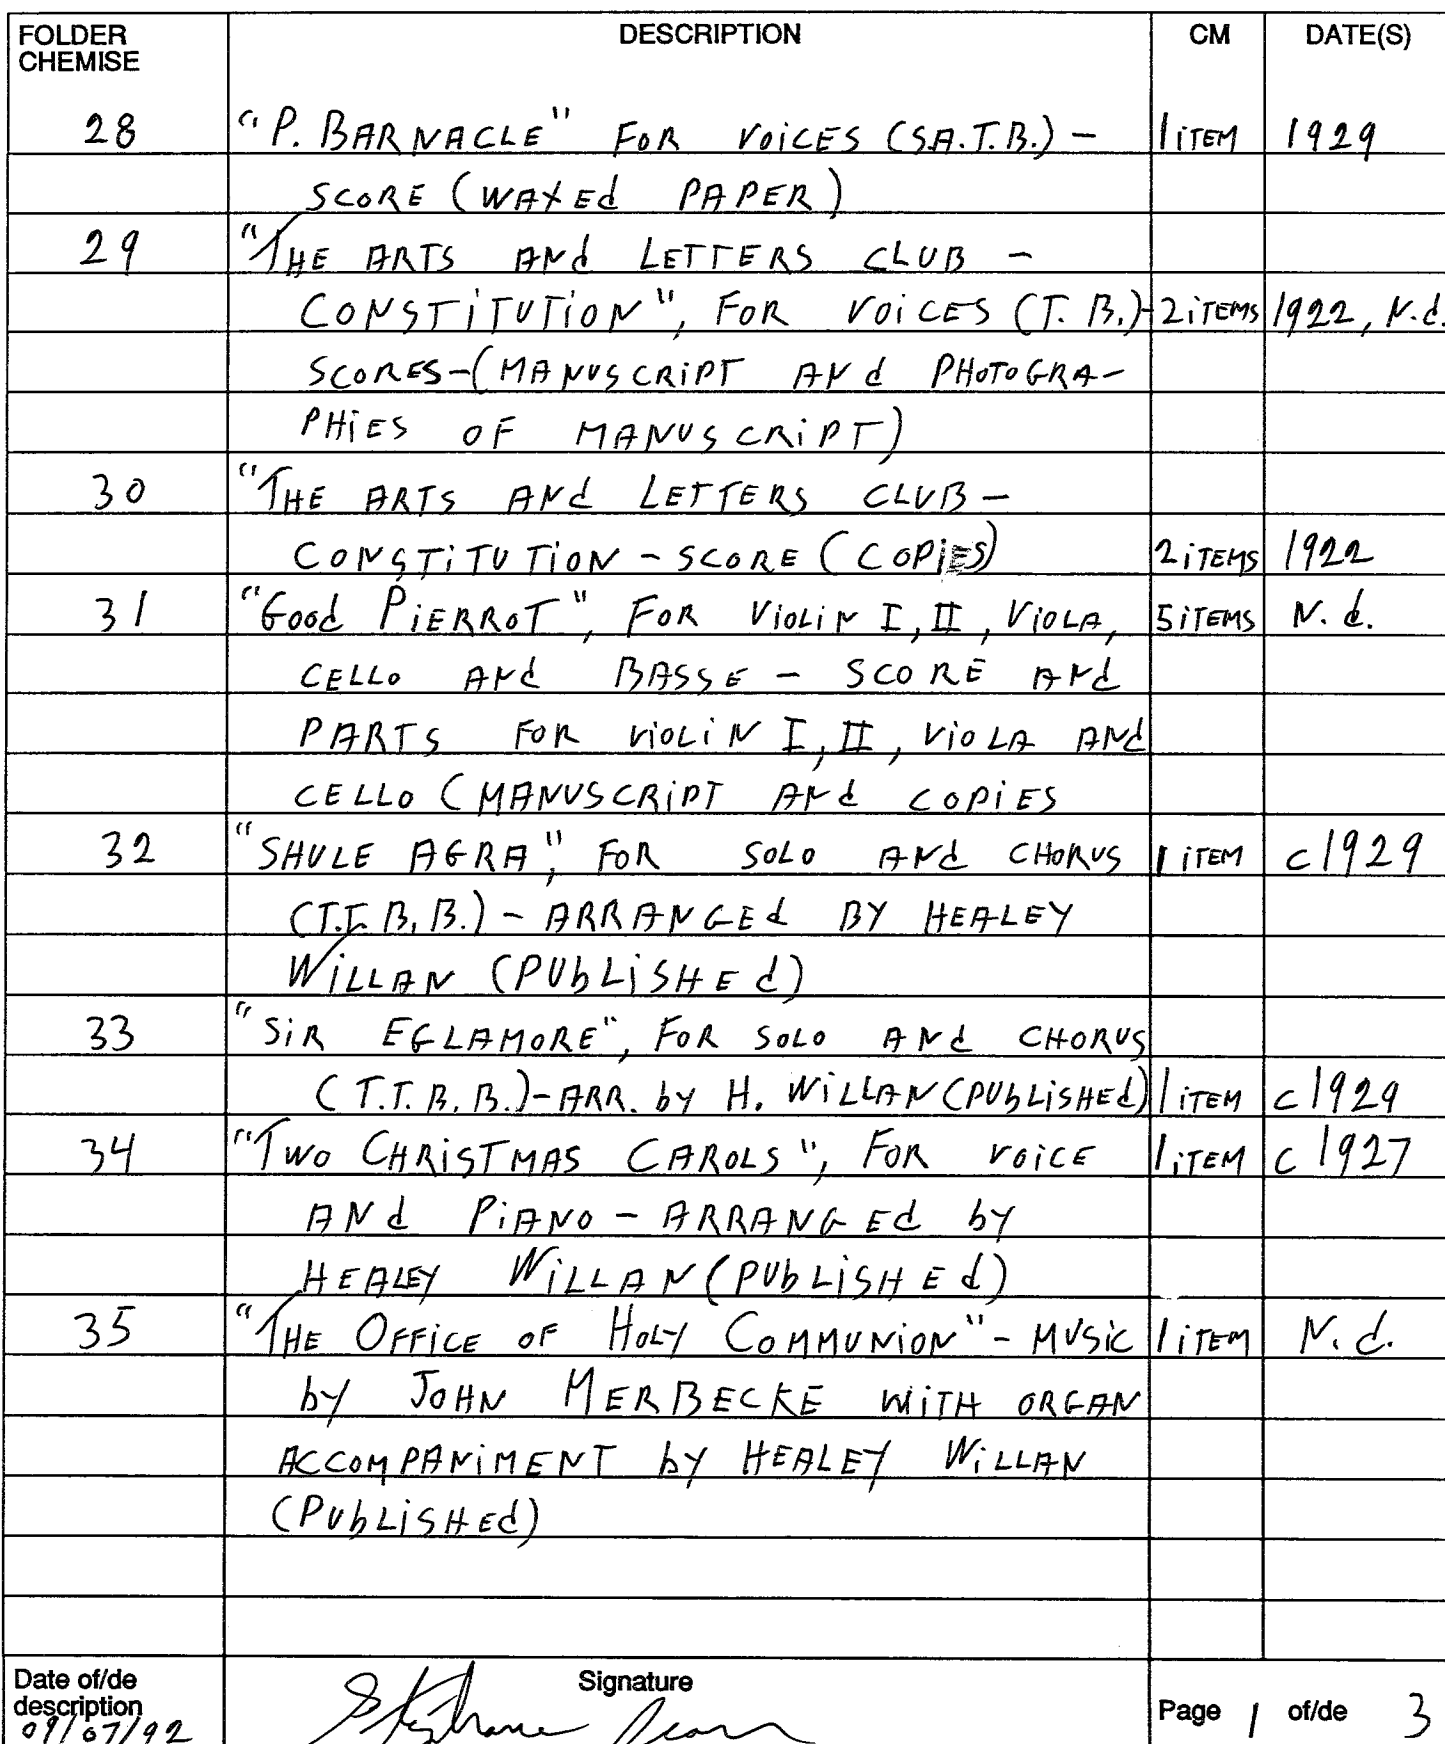 FOLDER CHEMISE DESCRIPTION CM DATE(S)
28 "P. BARNACLE" FOR VOICES (S.A.T.B.) - 1 ITEM 1929
SCORE (WAXED PAPER)
29 "THE ARTS ANd LETTERS CLUB -
CONSTITUTION", FOR VOICES (T. B.)- 2 ITEMS 1922, N.d.
SCORES-(MANUSCRIPT ANd PHOTOGRA-
PHIES OF MANUSCRIPT)
30 "THE ARTS ANd LETTERS CLUB -
CONSTITUTION - SCORE (COPIES) 2 ITEMS 1922
31 "Good PIERROT", FOR VIOLIN I, II, VIOLA, 5 ITEMS N. d.
CELLO ANd BASSE - SCORE ANd
PARTS FOR VIOLIN I, II, VIOLA ANd
CELLO (MANUSCRIPT ANd COPIES
32 "SHULE AGRA", FOR SOLO ANd CHORUS 1 ITEM c1929
(T.T. B. B.) - ARRANGEd BY HEALEY
WILLAN (PUbLISHEd)
33 "SIR EGLAMORE", FOR SOLO ANd CHORUS
(T.T. B. B.)-ARR. by H. WILLAN (PUbLISHEd) 1 ITEM c1929
34 "TWO CHRISTMAS CAROLS", FOR VOICE 1 ITEM c1927
ANd PIANO - ARRANGEd by
HEALEY WILLAN (PUbLISHEd)
35 "THE OFFICE OF HOLY COMMUNION" - MUSIC 1 ITEM N. d.
by JOHN MERBECKE WITH ORGAN
ACCOMPANIMENT by HEALEY WILLAN
(PUbLISHEd)
Date of/de Signature
description Page 1 of/de 3
09/07/92 Stéphane Jean